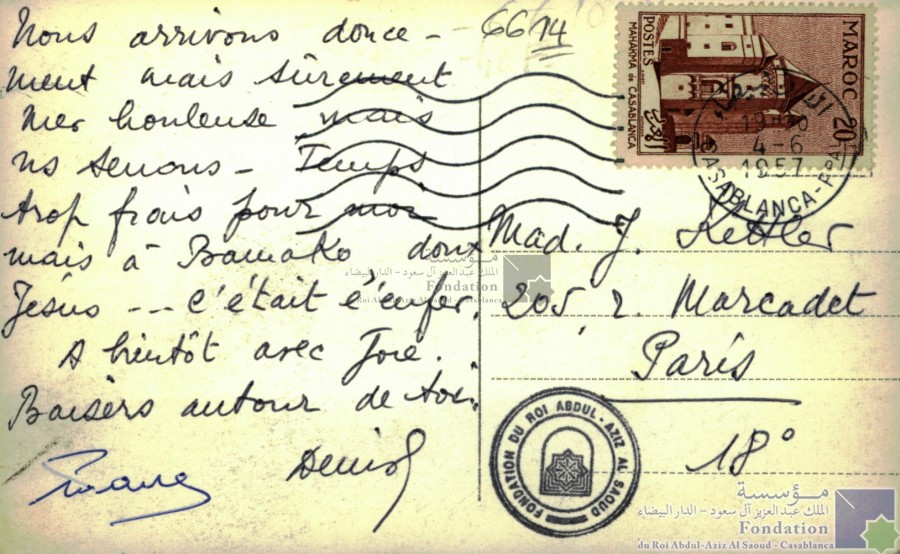 Nous arrivons douce-
ment mais sûrement
Mer houleuse mais
ns tenons - Temps
trop frais pour moi
mais à Bamako doux
Jésus ... c'était l'enfer.
A bientôt avec Joie.
Baisers autour de toi.
Denise
6614
MAROC
POSTES
MAHAKMA de CASABLANCA
20F
4-6
1957
CASABLANCA
Mad. J. Kettler
205, r. Marcadet
Paris
18°
FONDATION DU ROI ABDUL-AZIZ AL SAOUD
مؤسسة
الملك عبد العزيز آل سعود - الدار البيضاء
Fondation
du Roi Abdul-Aziz Al Saoud - Casablanca
مؤسسة
الملك عبد العزيز آل سعود - الدار البيضاء
Fondation
du Roi Abdul-Aziz Al Saoud - Casablanca